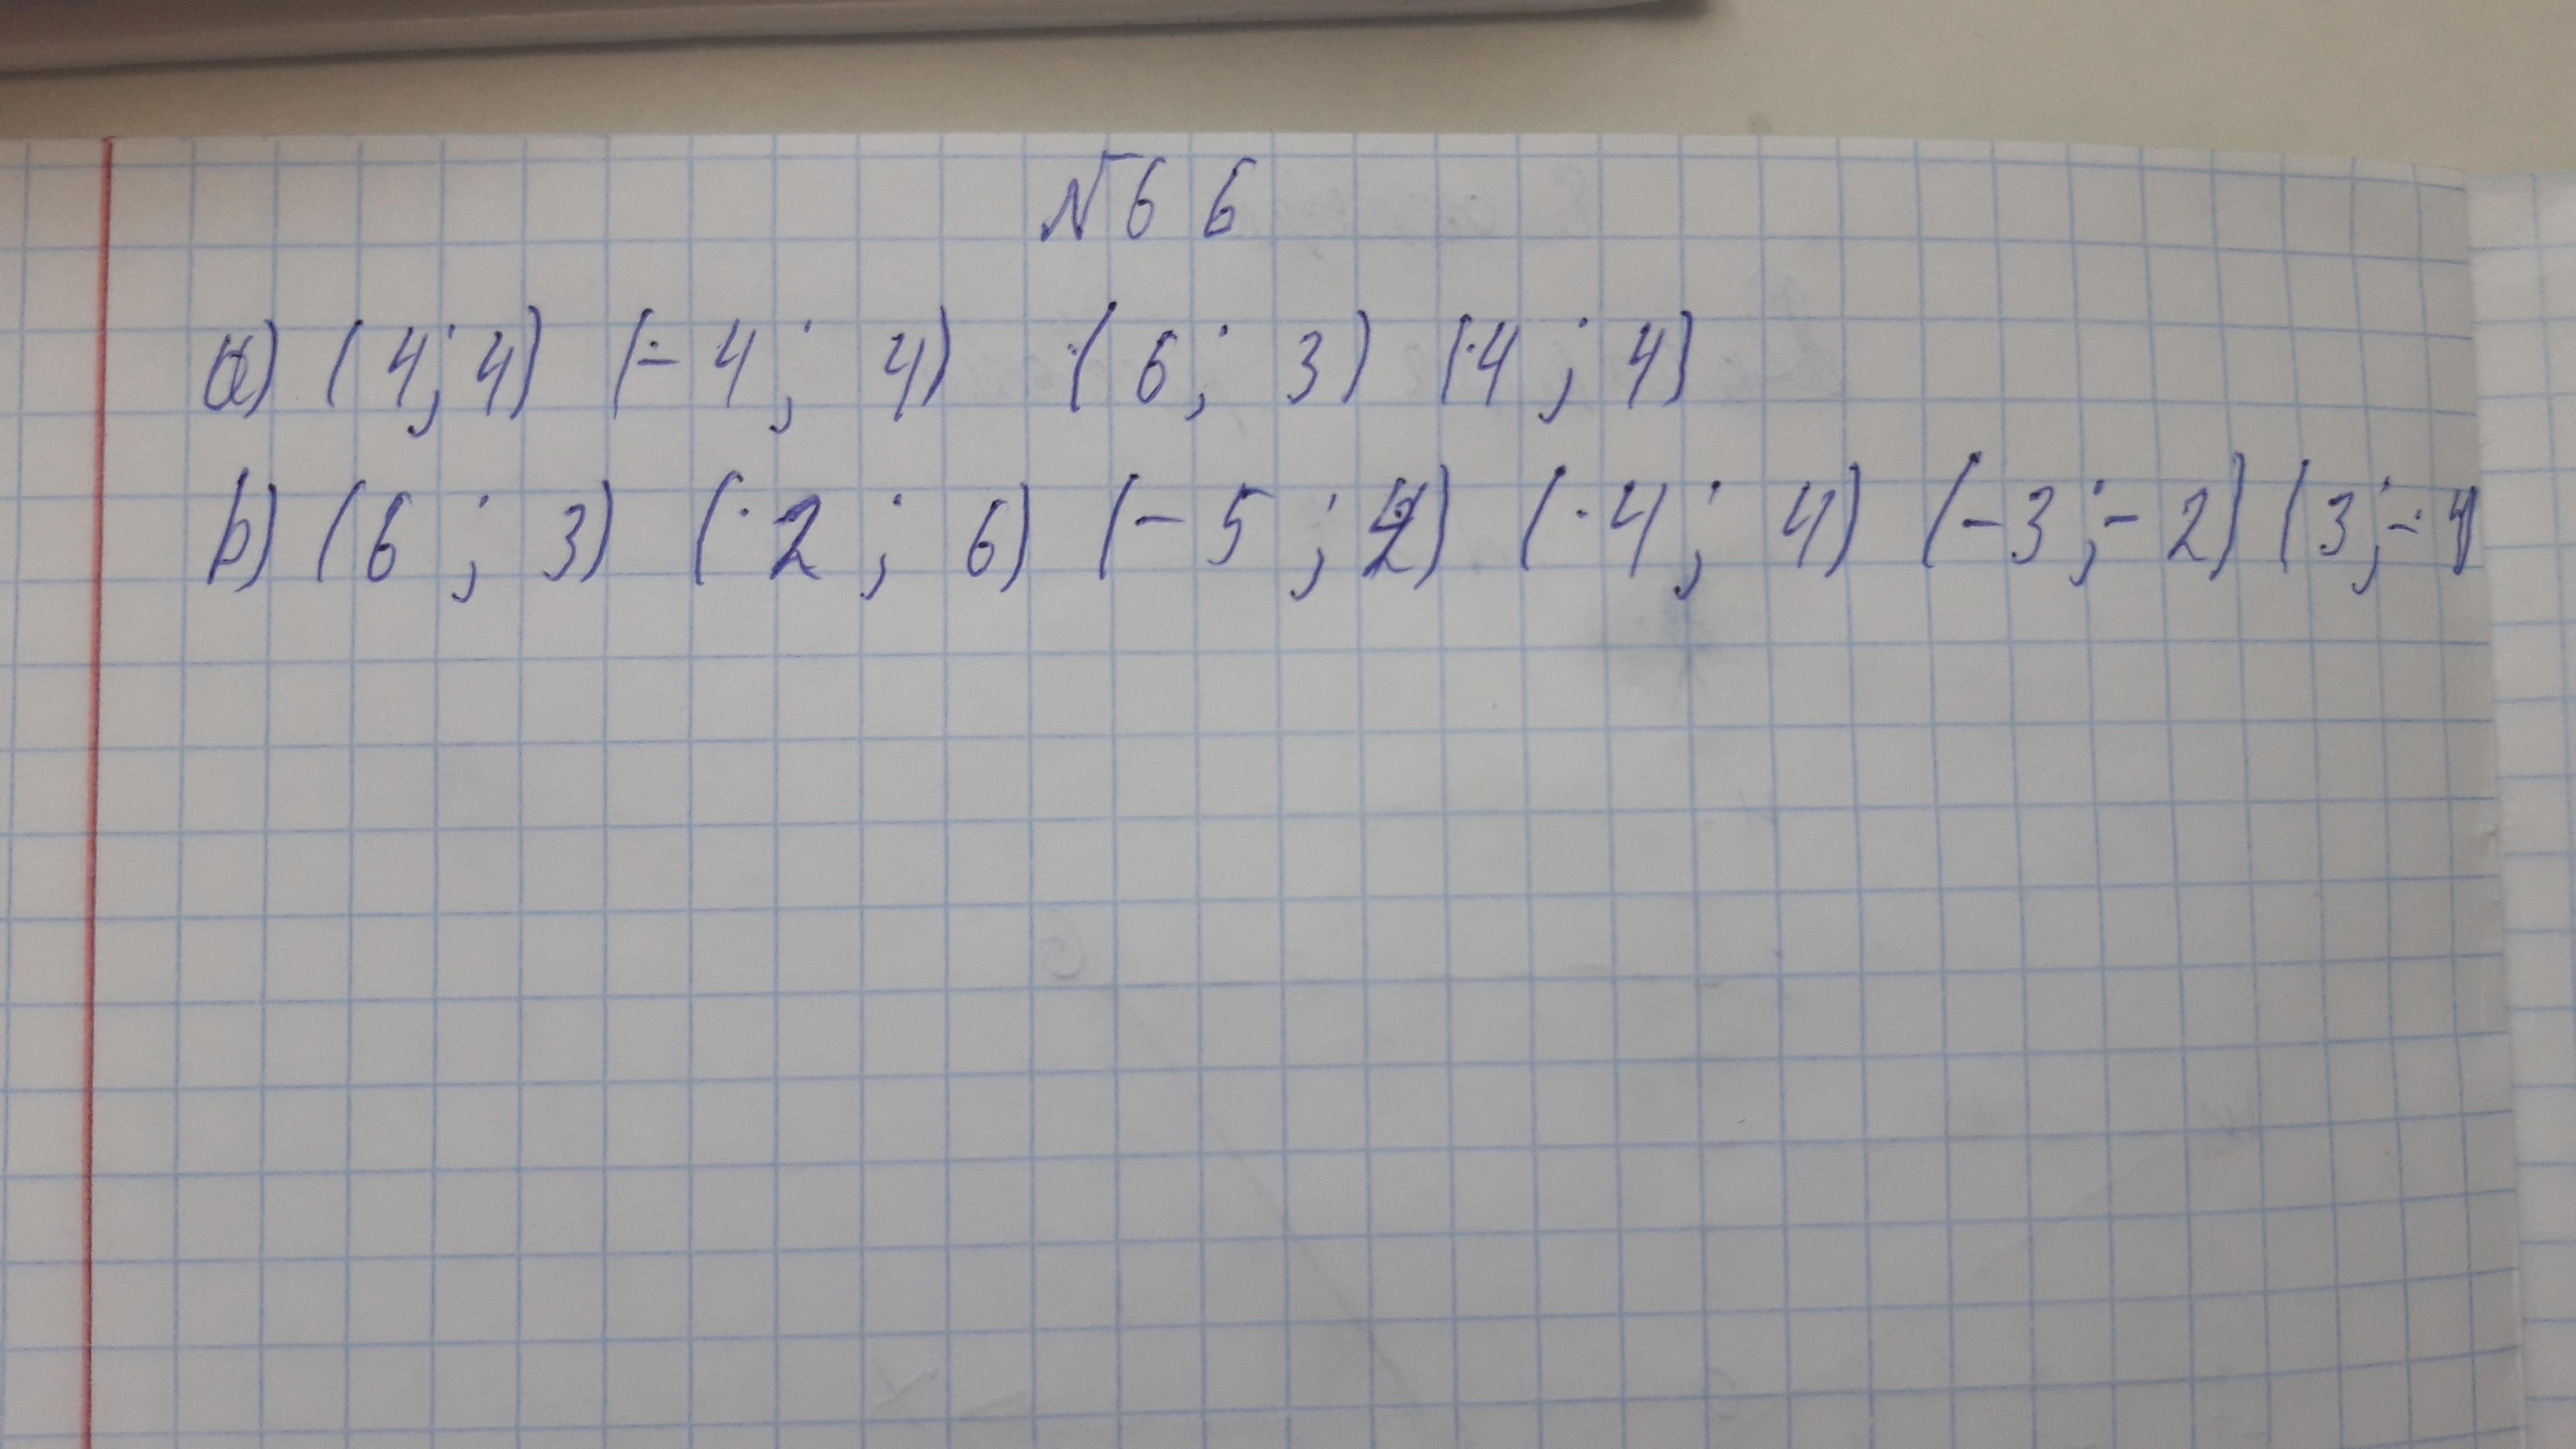 №66
a) (4; 4) (-4; 4) (6; 3) (4; 4)
b) (6; 3) (2; 6) (-5; 2) (4; 4) (-3; -2) (3; -4